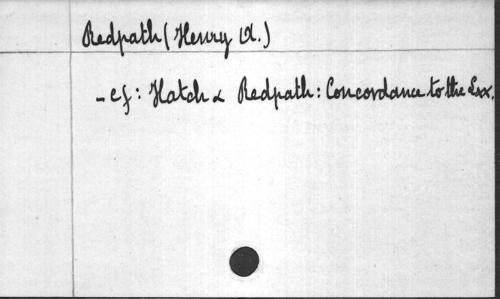 Redpath (Henry A.)
- cf: Hatch & Redpath: Concordance to the Lxx.